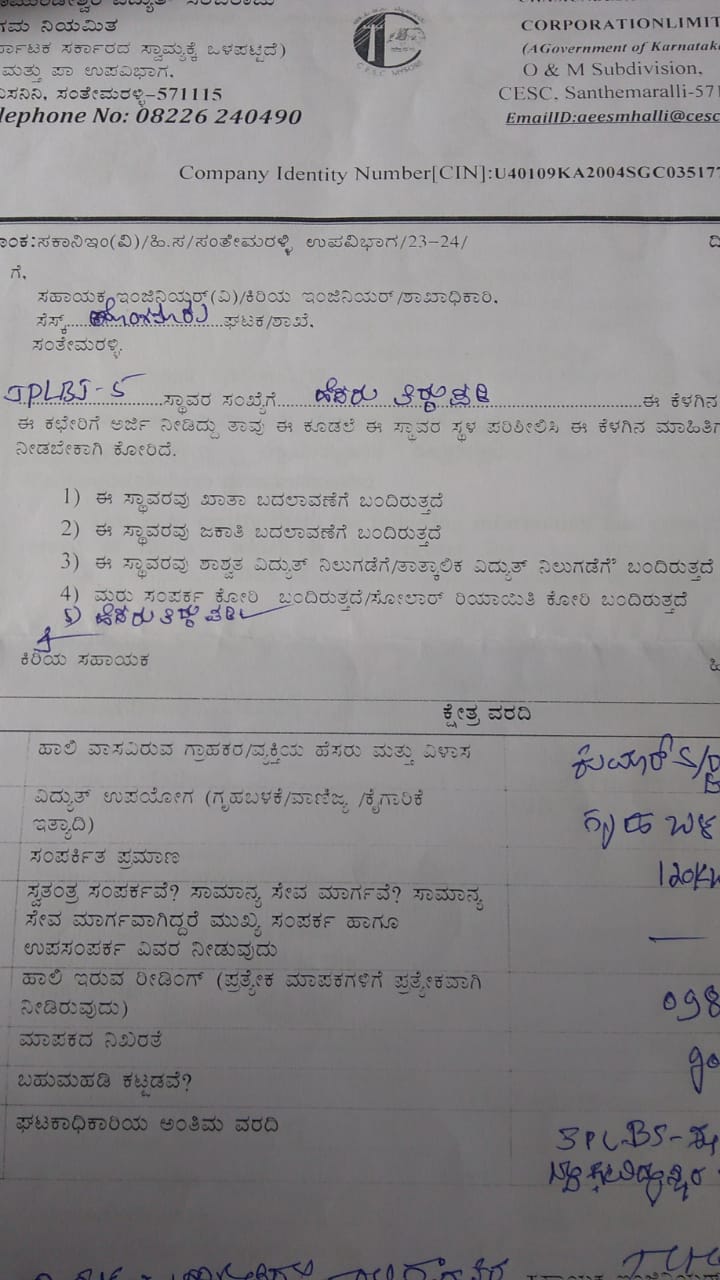 ನಿಗಮ ನಿಯಮಿತ
CORPORATIONLIMIT
ಸರ್ಕಾರದ ಸ್ವಾಮ್ಯಕ್ಕೆ ಒಳಪಟ್ಟಿದೆ)
(AGovernment of Karnatak
ಮತ್ತು ಪಾ ಉಪವಿಭಾಗ,
O & M Subdivision,
ಸಂತೇಮರಳ್ಳಿ-571115
CESC, Santhemaralli-571
lephone No: 08226 240490
EmailID:aeesmhalli@cesc
Company Identity Number[CIN]:U40109KA2004SGC035177
ಂಕ:ಸಕಾನಿಇಂ(ವಿ)/ಹಿ.ಸ/ಸಂತೇಮರಳ್ಳಿ ಉಪವಿಭಾಗ/23-24/
ಗೆ,
ಸಹಾಯಕ ಇಂಜಿನಿಯರ್(ವಿ)/ಕಿರಿಯ ಇಂಜಿನಿಯರ್/ಶಾಖಾಧಿಕಾರಿ,
ಸೆಸ್ಕ್ ಘಟಕ/ಶಾಖೆ,
ಸಂತೇಮರಳ್ಳಿ.
ಸ್ಥಾವರ ಸಂಖ್ಯೆಗೆ ಹೆಸರು ತಿದ್ದುಪಡಿ ಈ ಕೆಳಗಿನ
ಈ ಕಛೇರಿಗೆ ಅರ್ಜಿ ನೀಡಿದ್ದು ತಾವು ಈ ಕೂಡಲೆ ಈ ಸ್ಥಾವರ ಸ್ಥಳ ಪರಿಶೀಲಿಸಿ ಈ ಕೆಳಗಿನ ಮಾಹಿತಿಗ
ನೀಡಬೇಕಾಗಿ ಕೋರಿದೆ.
1) ಈ ಸ್ಥಾವರವು ಖಾತಾ ಬದಲಾವಣೆಗೆ ಬಂದಿರುತ್ತದೆ
2) ಈ ಸ್ಥಾವರವು ಜಕಾತಿ ಬದಲಾವಣೆಗೆ ಬಂದಿರುತ್ತದೆ
3) ಈ ಸ್ಥಾವರವು ಶಾಶ್ವತ ವಿದ್ಯುತ್ ನಿಲುಗಡೆಗೆ/ತಾತ್ಕಾಲಿಕ ವಿದ್ಯುತ್ ನಿಲುಗಡೆಗೆ ಬಂದಿರುತ್ತದೆ
4) ಮರು ಸಂಪರ್ಕ ಕೋರಿ ಬಂದಿರುತ್ತದೆ/ಸೋಲಾರ್ ರಿಯಾಯಿತಿ ಕೋರಿ ಬಂದಿರುತ್ತದೆ
5) ಹೆಸರು ತಿದ್ದುಪಡಿ
ಕಿರಿಯ ಸಹಾಯಕ
ಕ್ಷೇತ್ರ ವರದಿ
ಹಾಲಿ ವಾಸವಿರುವ ಗ್ರಾಹಕರ/ವ್ಯಕ್ತಿಯ ಹೆಸರು ಮತ್ತು ವಿಳಾಸ
ಕುಮಾರ್ S/
ವಿದ್ಯುತ್ ಉಪಯೋಗ (ಗೃಹಬಳಕೆ/ವಾಣಿಜ್ಯ /ಕೈಗಾರಿಕೆ
ಇತ್ಯಾದಿ)
ಗೃಹ ಬಳ
ಸಂಪರ್ಕಿತ ಪ್ರಮಾಣ
120KW
ಸ್ವತಂತ್ರ ಸಂಪರ್ಕವೆ? ಸಾಮಾನ್ಯ ಸೇವ ಮಾರ್ಗವೆ? ಸಾಮಾನ್ಯ
ಸೇವ ಮಾರ್ಗವಾಗಿದ್ದರೆ ಮುಖ್ಯ ಸಂಪರ್ಕ ಹಾಗೂ
ಉಪಸಂಪರ್ಕ ವಿವರ ನೀಡುವುದು
ಹಾಲಿ ಇರುವ ರೀಡಿಂಗ್ (ಪ್ರತ್ಯೇಕ ಮಾಪಕಗಳಿಗೆ ಪ್ರತ್ಯೇಕವಾಗಿ
ನೀಡಿರುವುದು)
098
ಮಾಪಕದ ನಿಖರತೆ
go
ಬಹುಮಹಡಿ ಕಟ್ಟಡವೆ?
ಘಟಕಾಧಿಕಾರಿಯ ಅಂತಿಮ ವರದಿ